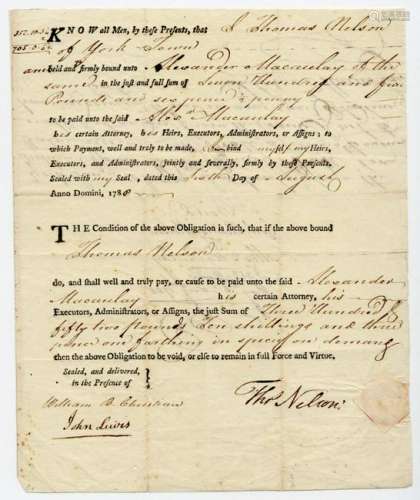 KNOW all Men, by these Presents, that I Thomas Nelson
of York Town
am held and firmly bound unto Alexander Macaulay of the
same in the just and full sum of Seven Hundred and five
Pounds and six pence ½ penny
to be paid unto the said Alexr Macaulay
his certain Attorney, his Heirs, Executors, Administrators, or Assigns; to
which Payment, well and truly to be made, I bind myself my Heirs,
Executors, and Administrators, jointly and severally, firmly by these Presents.
Sealed with my Seal, dated this Day of August
Anno Domini, 1788
THE Condition of the above Obligation is such, that if the above bound
Thomas Nelson
do, and shall well and truly pay, or cause to be paid unto the said Alexander
Macaulay his certain Attorney, his
Executors, Administrators, or Assigns, the just Sum of Three Hundred &
fifty two Pounds Ten shillings and three
pence one farthing in specie on demand
then the above Obligation to be void, or else to remain in full Force and Virtue.
Sealed, and delivered,
in the Presence of
Thos Nelson
William B. Christian
John Lewis